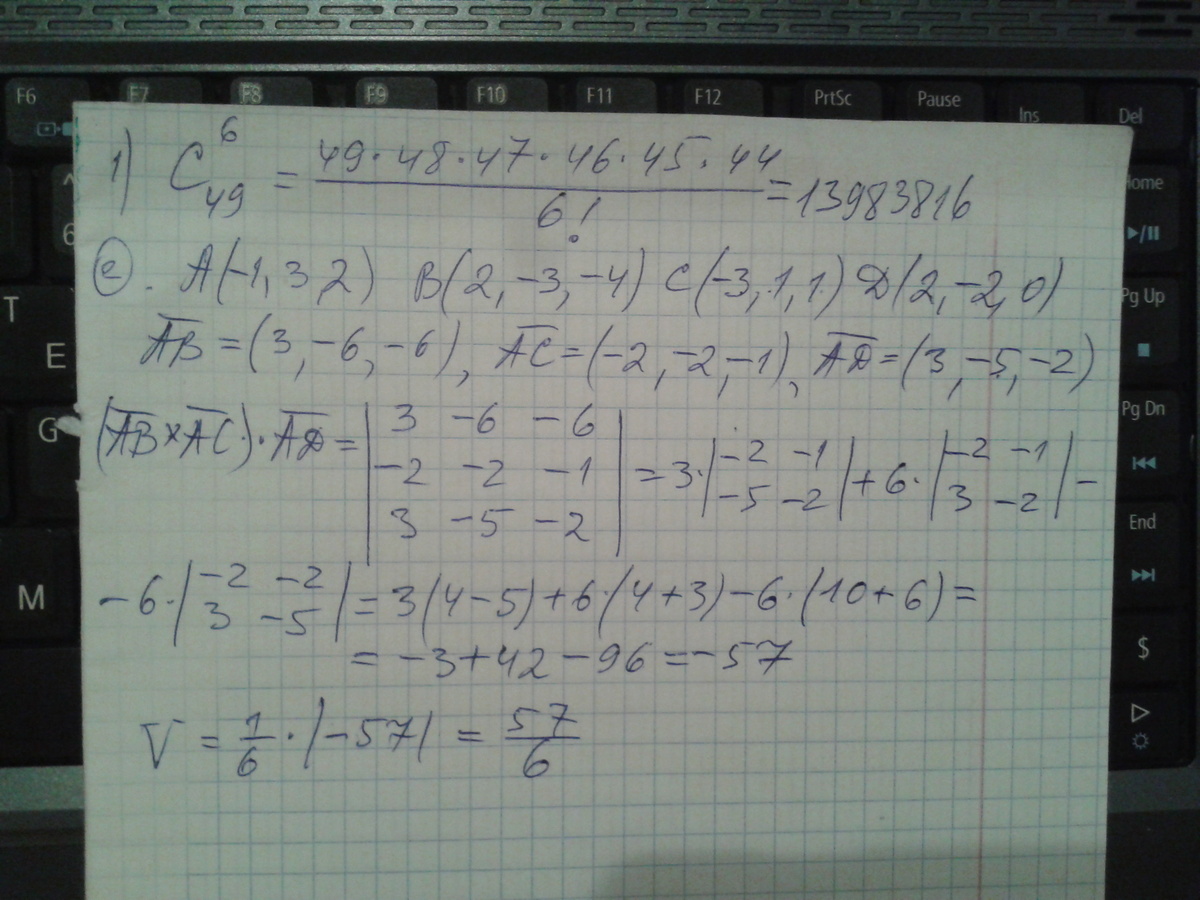 F6 F7 F8 F9 F10 F11 F12 PrtSc Pause Ins Del
1) C₄₉⁶ = 49·48·47·46·45·44 / 6! = 13983816
②. A(-1, 3, 2) B(2, -3, -4) C(-3, 1, 1) D(2, -2, 0)
AB̅ = (3, -6, -6), AC̅ = (-2, -2, -1), AD̅ = (3, -5, -2)
(AB̅ × AC̅)·AD̅ = | 3 -6 -6 ; -2 -2 -1 ; 3 -5 -2 | = 3·| -2 -1 ; -5 -2 | + 6·| -2 -1 ; 3 -2 | -
-6·| -2 -2 ; 3 -5 | = 3(4-5)+6·(4+3)-6·(10+6)=
= -3+42-96=-57
V = 1/6 · |-57| = 57/6
6
T
E
G
M
Home
Pg Up
Pg Dn
End
$